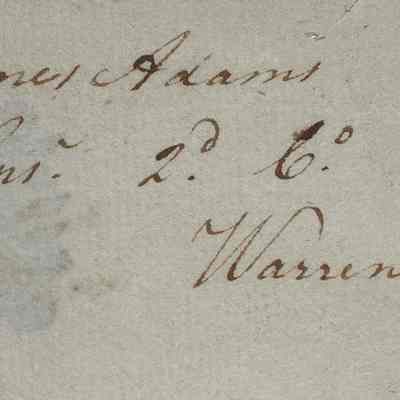 mes Adams
ns. 2.d C.o
Warren